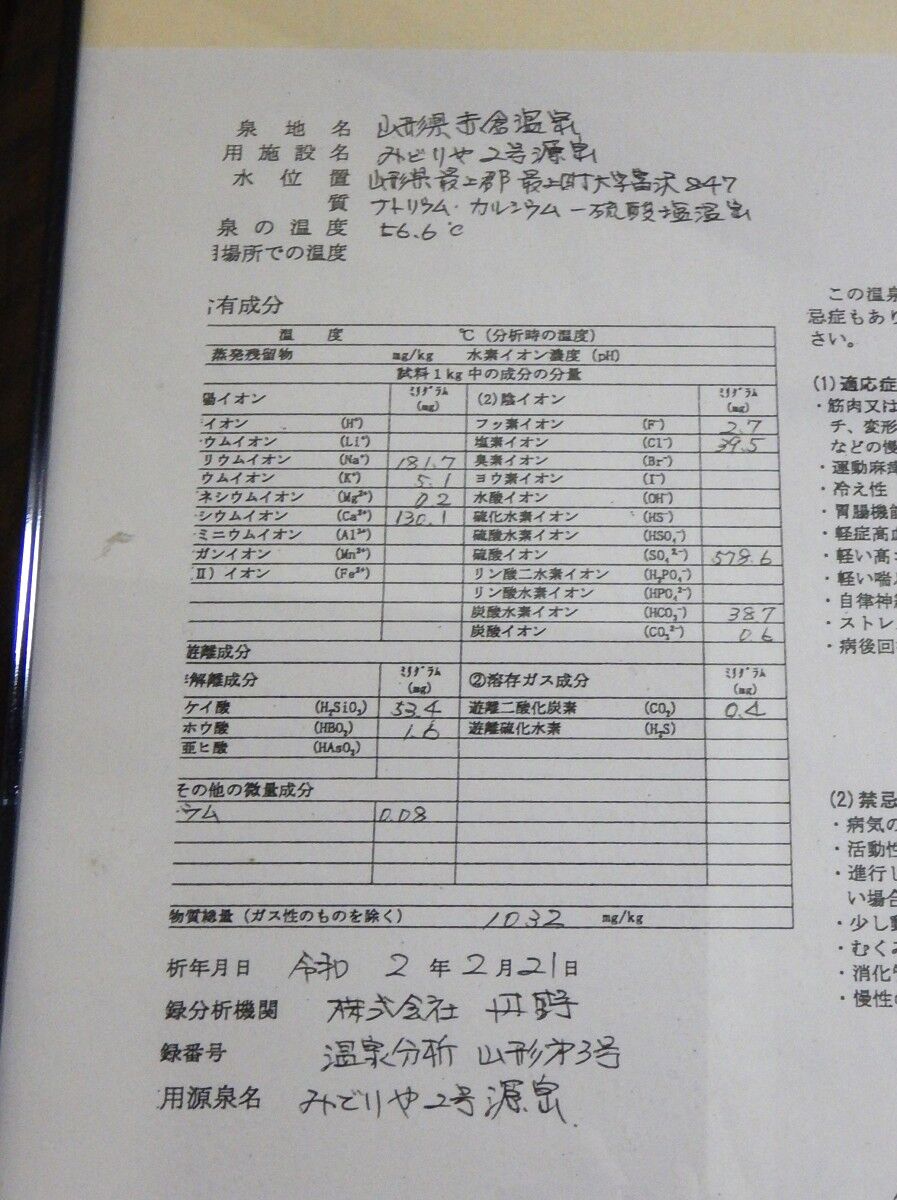 泉地名 山形県赤倉温泉
用施設名 みどりや2号源泉
水位置 山形県最上郡最上町大字富沢847
質 ナトリウム・カルシウム-硫酸塩温泉
泉の温度 56.6℃
場所での温度
有成分
温 度 ℃(分析時の温度)
蒸発残留物 mg/kg 水素イオン濃度(pH)
試料1kg中の成分の分量
陽イオン ミリグラム(mg) (2)陰イオン ミリグラム(mg)
イオン (H⁺) フッ素イオン (F⁻) 2.7
ウムイオン (Li⁺) 塩素イオン (Cl⁻) 39.5
リウムイオン (Na⁺) 181.7 臭素イオン (Br⁻)
ウムイオン (K⁺) 5.1 ヨウ素イオン (I⁻)
ネシウムイオン (Mg²⁺) 0.2 水酸イオン (OH⁻)
シウムイオン (Ca²⁺) 130.1 硫化水素イオン (HS⁻)
ミニウムイオン (Al³⁺) 硫酸水素イオン (HSO₄⁻)
ガンイオン (Mn²⁺) 硫酸イオン (SO₄²⁻) 578.6
Ⅱ)イオン (Fe²⁺) リン酸二水素イオン (H₂PO₄⁻)
リン酸水素イオン (HPO₄²⁻)
炭酸水素イオン (HCO₃⁻) 38.7
炭酸イオン (CO₃²⁻) 0.6
遊離成分
解離成分 ミリグラム(mg) ②溶存ガス成分 ミリグラム(mg)
ケイ酸 (H₂SiO₃) 53.4 遊離二酸化炭素 (CO₂) 0.4
ホウ酸 (HBO₂) 1.6 遊離硫化水素 (H₂S)
亜ヒ酸 (HAsO₂)
その他の微量成分
ウム 0.08
物質総量(ガス性のものを除く) 1032 mg/kg
析年月日 令和2年2月21日
録分析機関 株式会社 丹野
録番号 温泉分析 山形第3号
用源泉名 みどりや2号源泉
この温泉
忌症もあり
さい。
(1)適応症
・筋肉又は
チ、変形
などの慢
・運動麻痺
・冷え性
・胃腸機能
・軽症高血
・軽い高
・軽い喘
・自律神
・ストレ
・病後回
(2)禁忌
・病気の
・活動性
・進行し
い場合
・少し動
・むくみ
・消化管
・慢性の